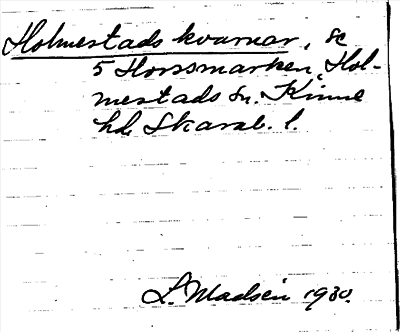 Holmestads kvarnar, se
5 Horssmarken, Hol-
mestads sn. Kinne
hd. Skarab. l.
L. Madsén 1930.